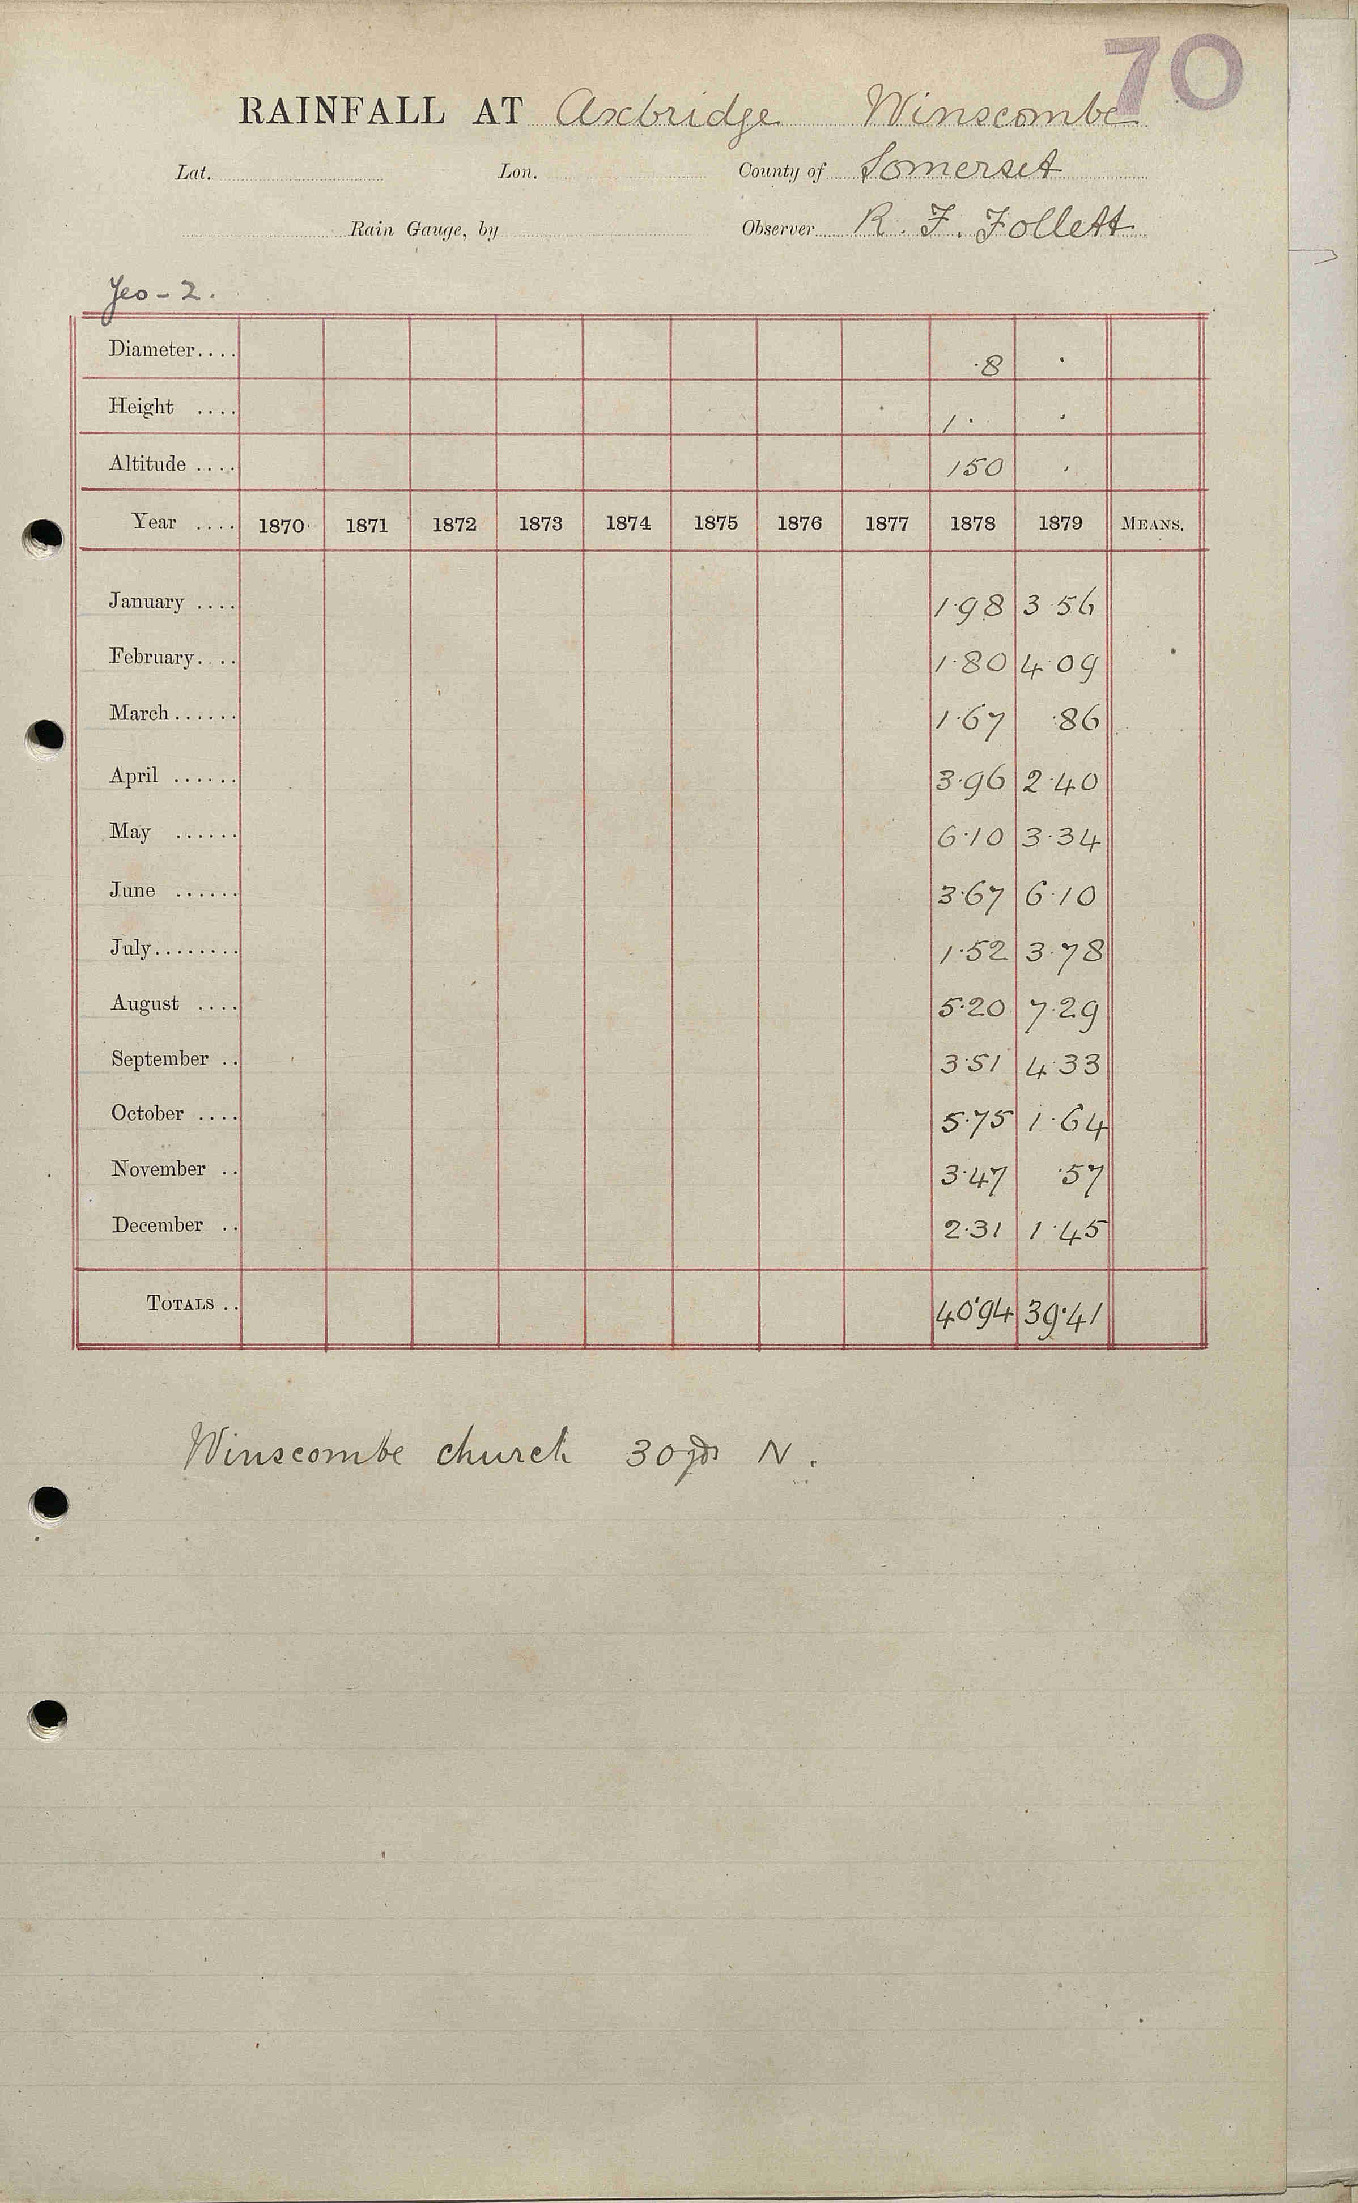 70
RAINFALL AT Axbridge Winscombe
Lat. Lon. County of Somerset
Rain Gauge, by Observer R. F. Follett
Yeo - 2.
Diameter.... 8 .
Height .... 1. .
Altitude .... 150 .
Year .... 1870 1871 1872 1873 1874 1875 1876 1877 1878 1879 MEANS.
January .... 1.98 3.56
February.... 1.80 4.09
March...... 1.67 .86
April ...... 3.96 2.40
May ...... 6.10 3.34
June ...... 3.67 6.10
July........ 1.52 3.78
August .... 5.20 7.29
September .. 3.51 4.33
October .... 5.75 1.64
November .. 3.47 .57
December .. 2.31 1.45
TOTALS .. 40.94 39.41
Winscombe church 30yds N.